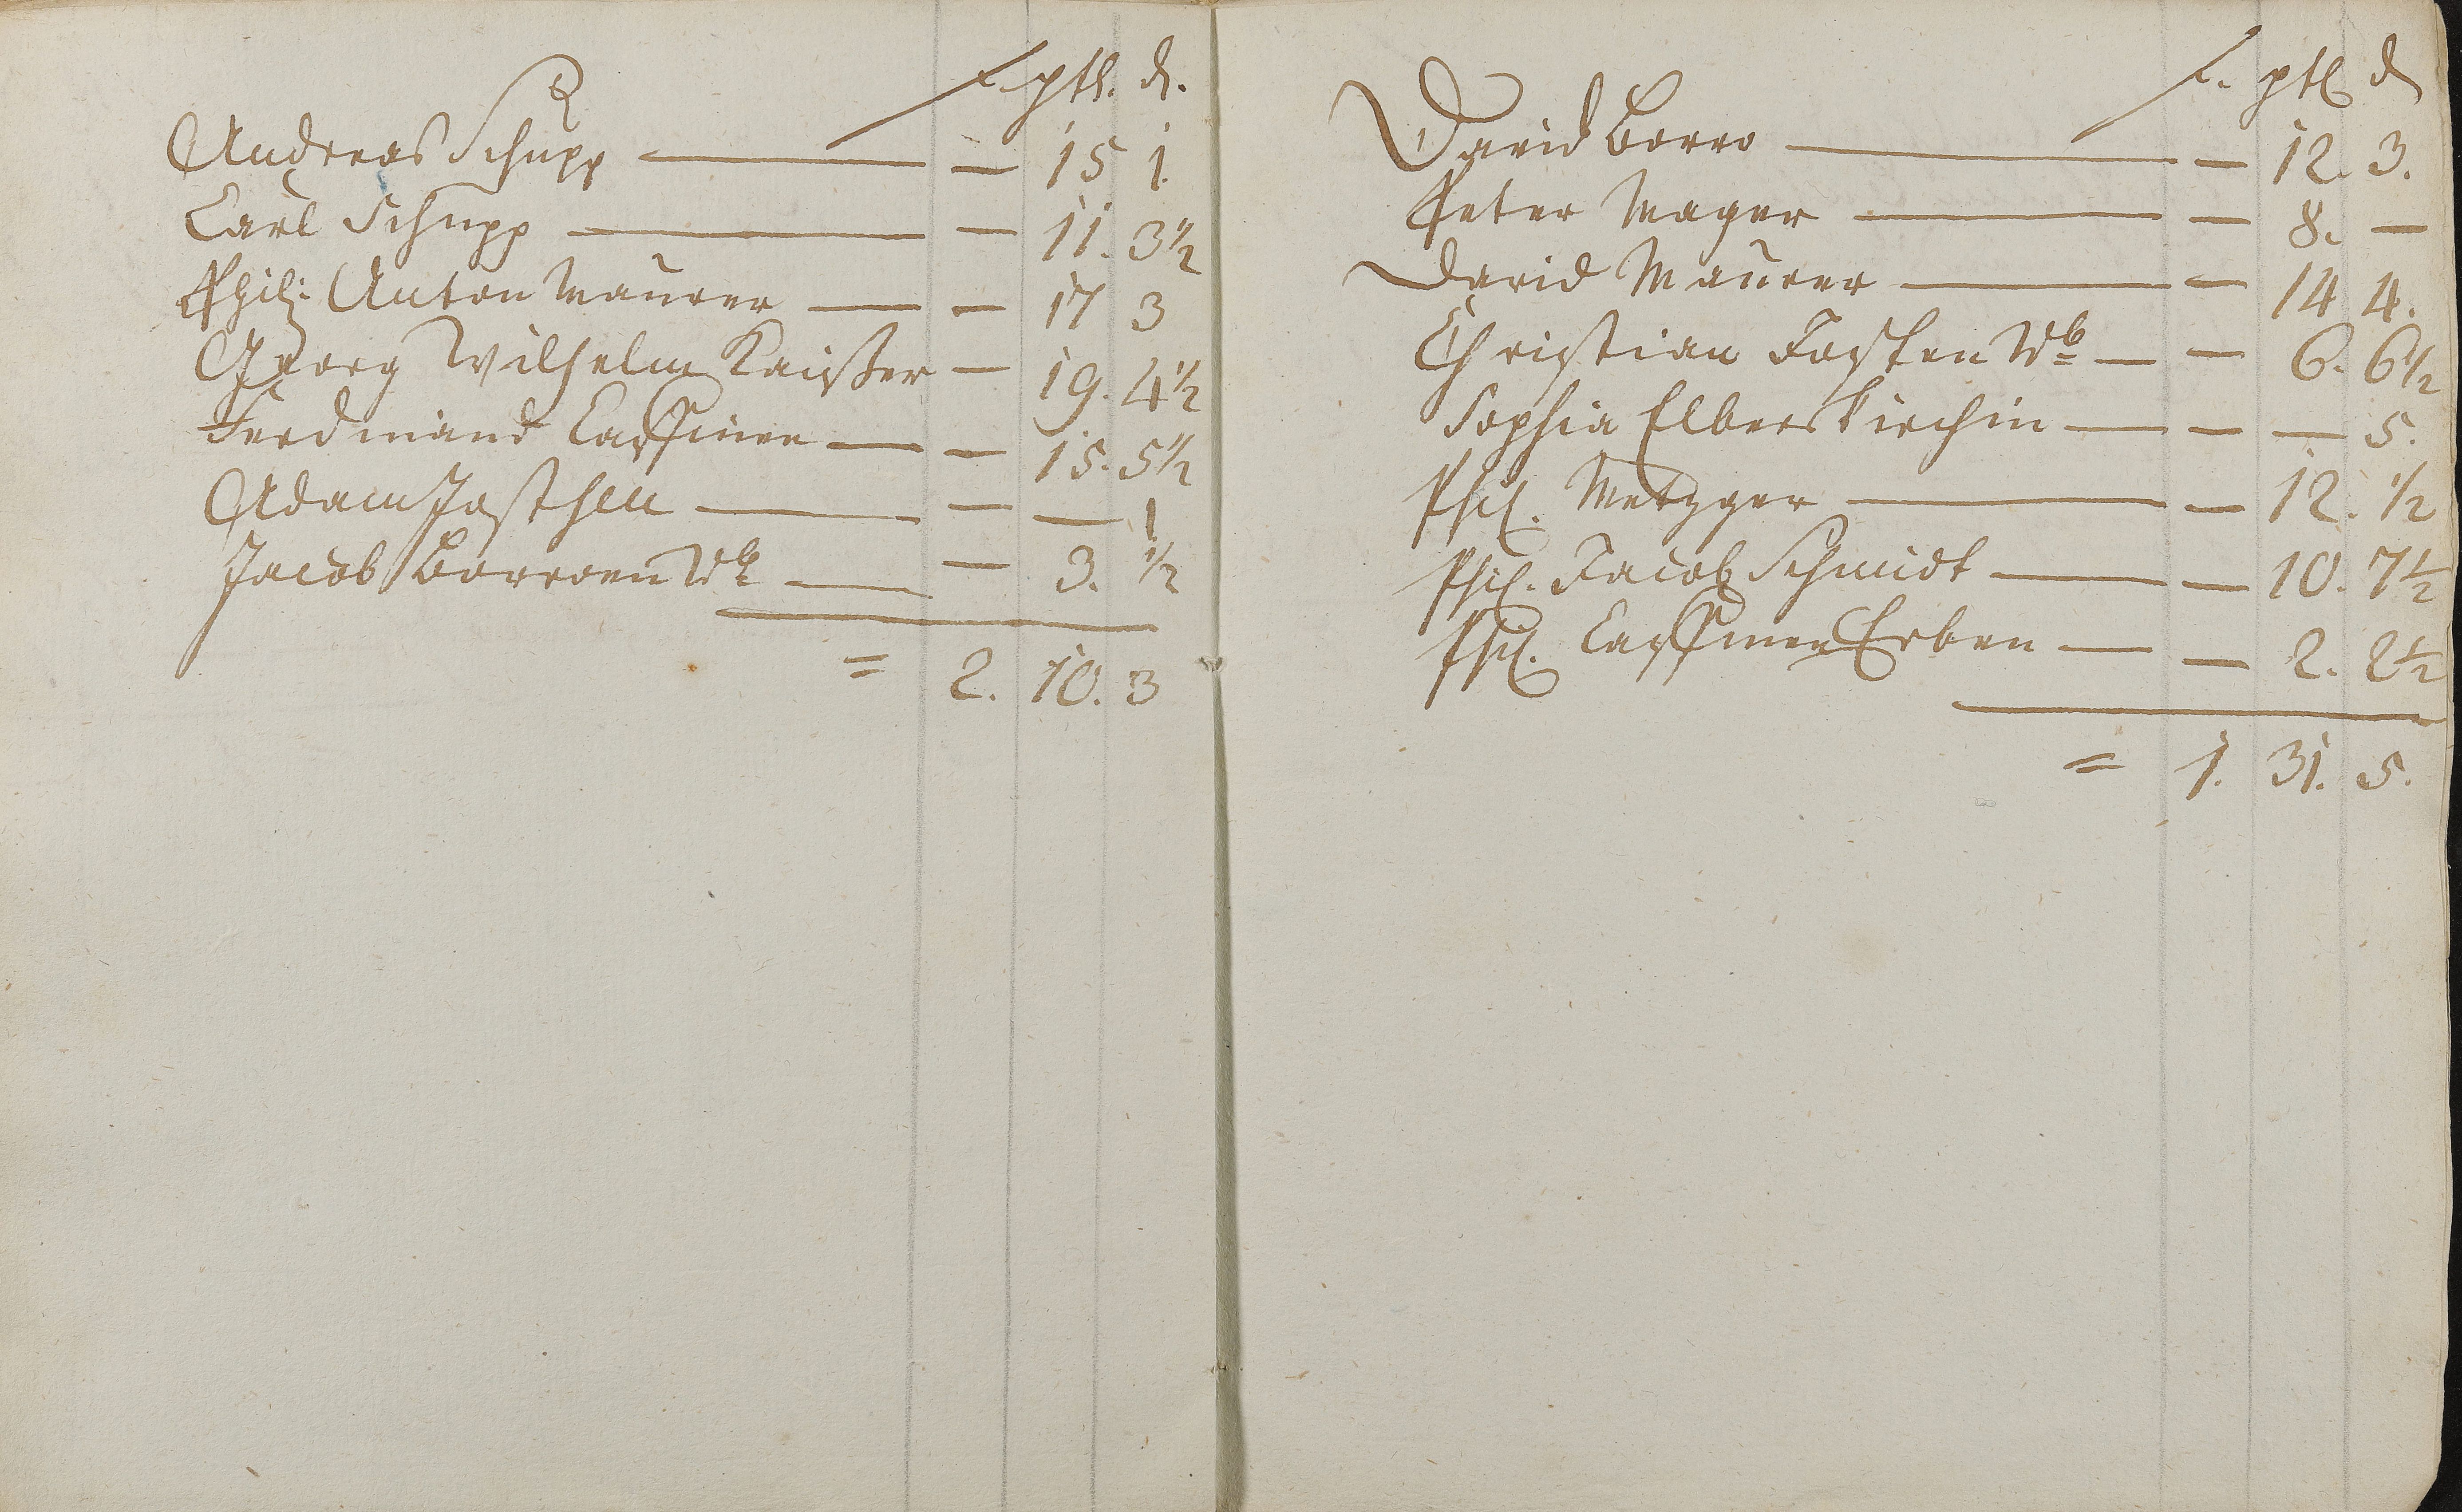 f. ptz. d.
Andreas Schupp — — 15 1.
Carl Schupp — — 11. 3½
Phil: Anton Maurer — — 17 3
Georg Wilhelm Kaisser — 19. 4½
Ferdinand — — 15. 5½
Adam Josthen — — — 1
Jacob Borroen Wb — — 3. ½
= 2. 10. 3
f. ptz d
David Borro — — 12. 3.
Peter Mager — — 8. —
David Maurer — — 14 4.
Christian Josten Wb — — 6. 6½
Sophia Elberskirchin — — — 5.
Phil. Metzger — — 12. ½
Phil. Jacob Schmidt — — 10. 7½
Phil. Erben — — 2. 2½
= 1. 31. 5.